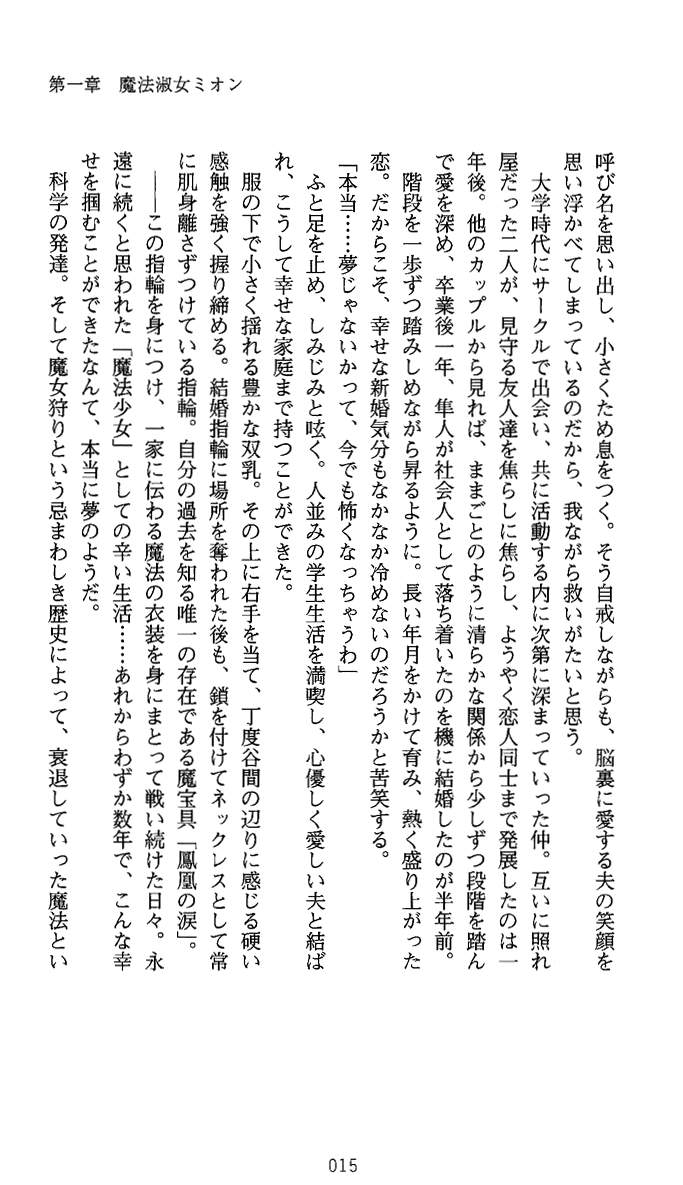 第一章　魔法淑女ミオン
呼び名を思い出し、小さくため息をつく。そう自戒しながらも、脳裏に愛する夫の笑顔を
思い浮かべてしまっているのだから、我ながら救いがたいと思う。
　大学時代にサークルで出会い、共に活動する内に次第に深まっていった仲。互いに照れ
屋だった二人が、見守る友人達を焦らしに焦らし、ようやく恋人同士まで発展したのは一
年後。他のカップルから見れば、ままごとのように清らかな関係から少しずつ段階を踏ん
で愛を深め、卒業後一年、隼人が社会人として落ち着いたのを機に結婚したのが半年前。
　階段を一歩ずつ踏みしめながら昇るように。長い年月をかけて育み、熱く盛り上がった
恋。だからこそ、幸せな新婚気分もなかなか冷めないのだろうかと苦笑する。
「本当……夢じゃないかって、今でも怖くなっちゃうわ」
　ふと足を止め、しみじみと呟く。人並みの学生生活を満喫し、心優しく愛しい夫と結ば
れ、こうして幸せな家庭まで持つことができた。
　服の下で小さく揺れる豊かな双乳。その上に右手を当て、丁度谷間の辺りに感じる硬い
感触を強く握り締める。結婚指輪に場所を奪われた後も、鎖を付けてネックレスとして常
に肌身離さずつけている指輪。自分の過去を知る唯一の存在である魔宝具「鳳凰の涙」。
　――この指輪を身につけ、一家に伝わる魔法の衣装を身にまとって戦い続けた日々。永
遠に続くと思われた「魔法少女」としての辛い生活……あれからわずか数年で、こんな幸
せを掴むことができたなんて、本当に夢のようだ。
　科学の発達。そして魔女狩りという忌まわしき歴史によって、衰退していった魔法とい
015